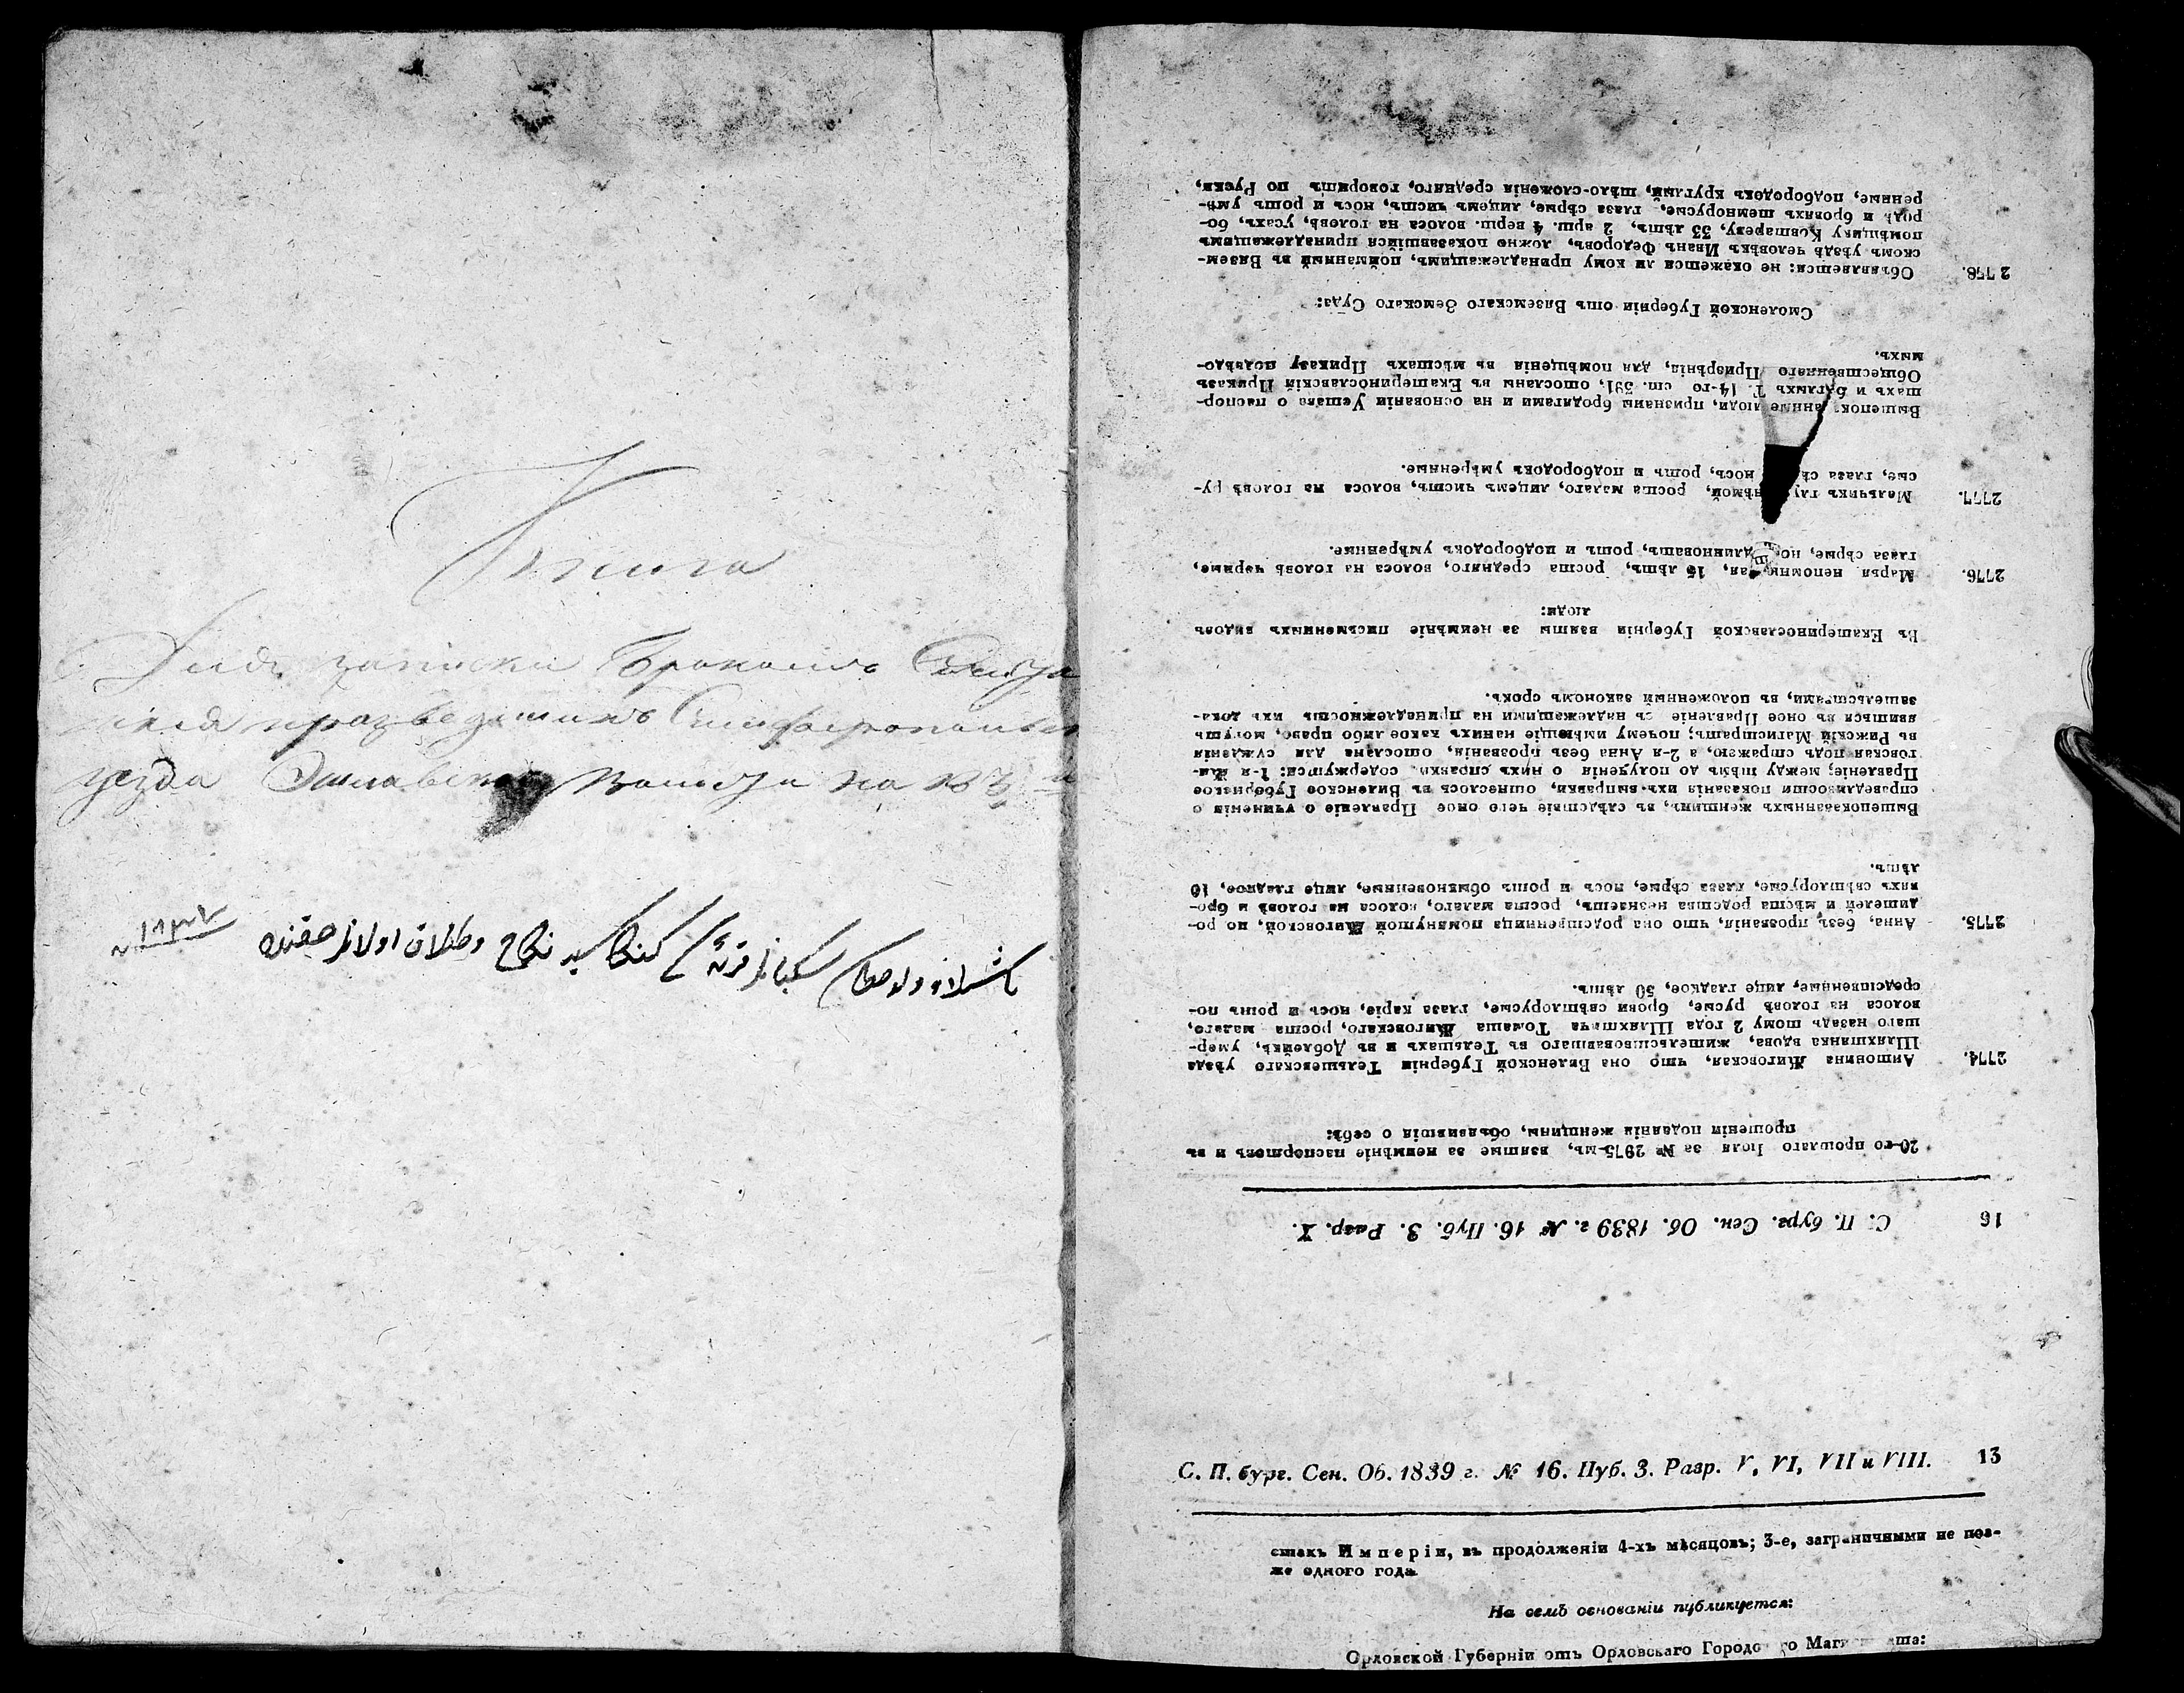 Книга
Для записки браковъ
уезда на
نكاح وطلاق اولانلر حقنده
16
С. П. бург. Сен. Об. 1839 г. № 16. Пуб. 3. Разр. X.
20-го прошлаго Іюля за № 2975-мъ, взятые за неимѣніе паспортовъ и въ
прошеніи подаянія женщины, объявившія о себѣ:
2774. Антонина Жиговская, что она Виленской Губерніи Тельшевскаго уѣзда
Шляхтянка вдова, жительствовавшаго въ Тельшахъ и въ Доблейкѣ, умер-
шаго назадъ тому 2 года Шляхтича Томаша Жиговскаго, роста малаго,
волоса на головѣ русые, брови свѣтлорусые, глаза каріе, носъ и ротъ по-
средственные, лице гладкое, 50 лѣтъ.
2775. Анна, безъ прозванія, что она родственница помянутой Жиговской, но ро-
дителей и мѣста родства незнаетъ, роста малаго, волоса на головѣ и бро-
вяхъ свѣтлорусые, глаза сѣрые, носъ и ротъ обыкновенные, лице гладкое, 16
лѣтъ.
Вышепоказанныхъ женщинъ, въ слѣдствіе чего оное Правленіе о учиненіи о
справедливости показанія ихъ выправки, отнеслось въ Виленское Губернское
Правленіе; между тѣмъ до полученія о нихъ справки, содержутся: 1-я Жи-
говская подъ стражею, а 2-я Анна безъ прозванія, отослана для сужденія
въ Рижскій Магистратъ; почему имѣющіе нанихъ какое либо право, могутъ
явиться въ оное Правленіе съ надлежащими на принадлежность ихъ дока-
зательствами, въ положенный закономъ срокъ.
Въ Екатеринославской Губерніи взяты за неимѣніе письменныхъ видовъ
люди:
2776. Марья непомнящая, 15 лѣтъ, роста средняго, волоса на головѣ черные,
глаза сѣрые, носъ длинноватъ, ротъ и подбородокъ умѣренные.
2777. Мальчикъ нѣмой, роста малаго, лицемъ чистъ, волоса на головѣ ру-
сые, глаза носъ, ротъ и подбородокъ умѣренные.
люди, признаны бродягами и на основаніи Устава о паспор-
тахъ и бѣглыхъ Т. 14-го ст. 591, отосланы въ Екатеринославскій Приказъ
Общественнаго Призрѣнія, для помѣщенія въ мѣстахъ Приказу подвѣдо-
мыхъ.
Смоленской Губерніи отъ Вяземскаго Земскаго Суда:
2778. Объявляется: не окажется ли кому принадлежащимъ, пойманный въ Вязем-
скомъ уѣздѣ человѣкъ Иванъ Федоровъ, ложно показавшійся принадлежащимъ
помѣщику Ковтареву, 33 лѣтъ, 2 арш. 4 верш. волоса на головѣ, усахъ, бо-
родѣ и бровяхъ темнорусые, глаза сѣрые, лицемъ чистъ, носъ и ротъ умѣ-
ренные, подбородокъ круглый, тѣло-сложенія средняго, говоритъ по Руски,
С. П. бург. Сен. Об. 1839 г. № 16. Пуб. 3. Разр. V, VI, VII и VIII. 13
стяхъ Имперіи, въ продолженіи 4-хъ мѣсяцовъ; 3-е, заграничными не поз-
же одного года
На семъ основаніи публикуется:
Орловской Губерніи отъ Орловскаго